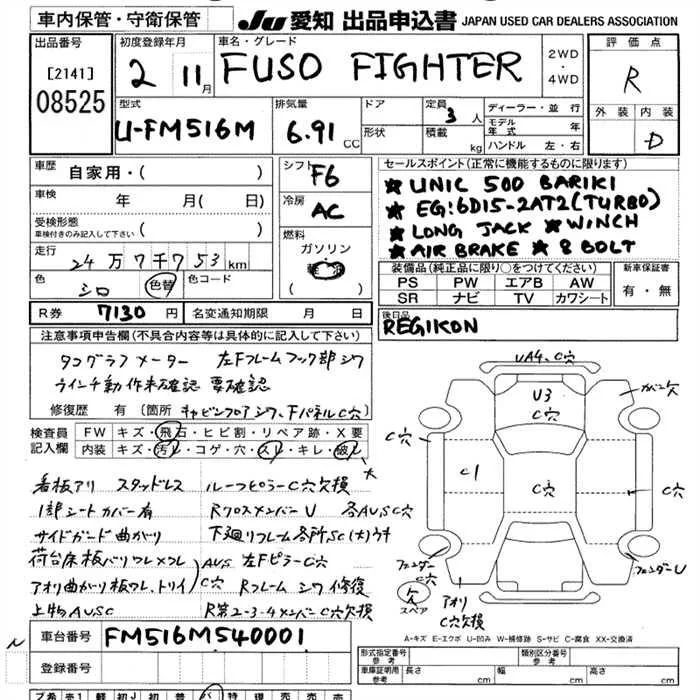 車内保管・守衛保管
Ju 愛知 出品申込書 JAPAN USED CAR DEALERS ASSOCIATION
出品番号
[2141]
08525
初度登録年月
2 11月
車名・グレード
FUSO FIGHTER
2WD
・
4WD
評価点
R
外装 内装
D
型式
U-FM516M
排気量
6.91 CC
ドア
形状
定員
3人
積載
kg
ディーラー・並行
モデル年式 年
ハンドル 左・右
車歴
自家用・( )
車検 年 月( 日)
受検形態
車検付きのみ記入して下さい ( )
走行
24万7千753km
色
シロ
色替
色コード
シフト
F6
冷房
AC
燃料
ガソリン
セールスポイント(正常に機能するものに限ります)
★ UNIC 500 BARIKI
★ EG:6D15-2AT2(TURBO)
★ LONG JACK ★ WINCH
★ AIR BRAKE ★ 8 BOLT
装備品(純正品に限り○をつけてください)
PS PW エアB AW
SR ナビ TV カワシート
新車保証書
有・無
R券 7130円 名変通知期限 月 日
後日品
REGIKON
注意事項申告欄(不具合内容等は具体的に記入して下さい)
タコグラフメーター 左Fフレームフック部シワ
ウインチ動作未確認 要確認
修復歴 有 (箇所 キャビンフロアシワ、FパネルC穴)
検査員
記入欄
FW キズ・飛石・ヒビ割・リペア跡・X要
内装 キズ・汚レ・コゲ・穴・スレ・キレ・破レ
大
看板アリ スタッドレス ルーフピラーC穴欠損
1部シートカバー有 RクロスメンバーU 各AUSC穴
サイドガード曲がり 下廻リフレーム各所SC(大)ウキ
荷台床板バリワレメクレ AUS 左FピラーC穴
アオリ曲がり板ワレ、トリイ C穴 Rフレームシワ修復
上物AUSC R第2-3-4メンバーC穴欠損
UA4、C穴
U3
C穴
カバー欠
C穴
C1
C穴
C穴
フェンダーC穴
フェンダーU
欠
スペア
アオリ
C穴欠損
A-キズ E-エクボ U-凹み W-補修跡 S-サビ C-腐食 XX-交換済
車台番号 FM516M540001
登録番号
形式指定番号
参考
類別区分番号
参考
車庫証明用
参考
長さ cm 幅 cm 高さ cm